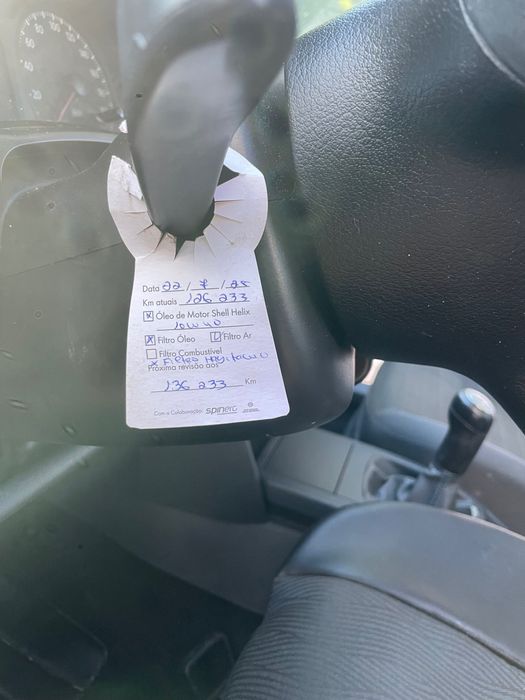 Data 22 / 7 / 25
Km atuais 126 233
Óleo de Motor Shell Helix
10W40
Filtro Óleo Filtro Ar
Filtro Combustível
x Filtro Habitáculo
Próxima revisão aos
136 233 Km
Com a Colaboração: spinerg